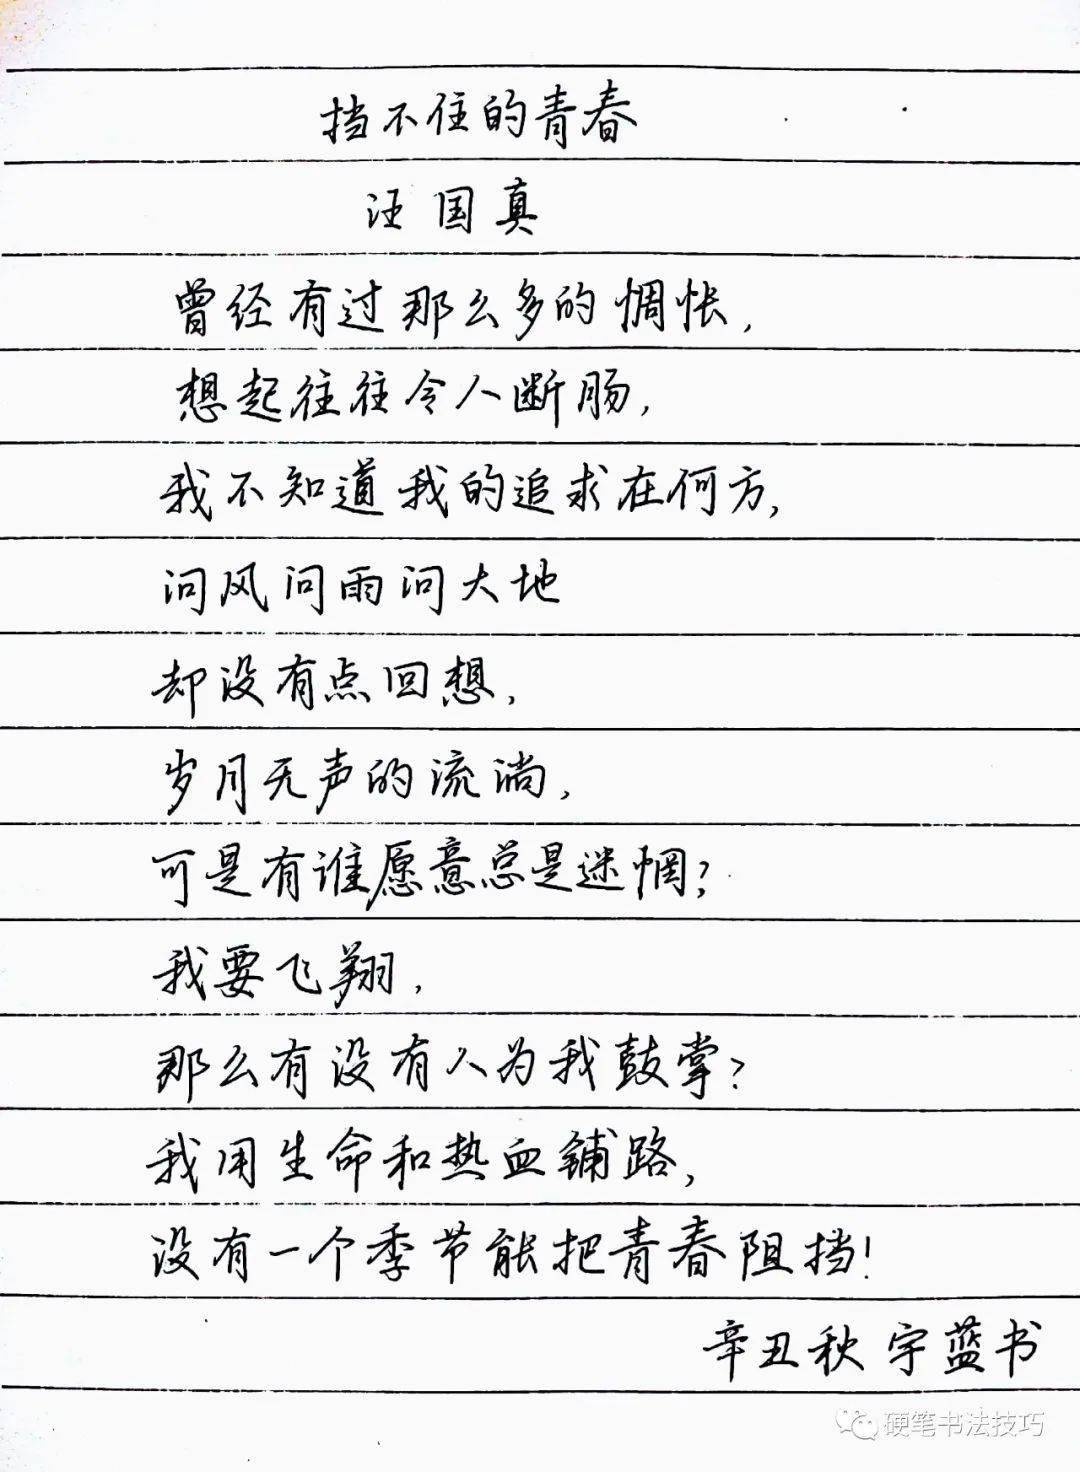 挡不住的青春
汪国真
曾经有过那么多的惆怅,
想起往往令人断肠,
我不知道我的追求在何方,
问风问雨问大地
却没有点回想,
岁月无声的流淌,
可是有谁愿意总是迷惘?
我要飞翔,
那么有没有人为我鼓掌?
我用生命和热血铺路,
没有一个季节能把青春阻挡!
辛丑秋 宇蓝书
硬笔书法技巧